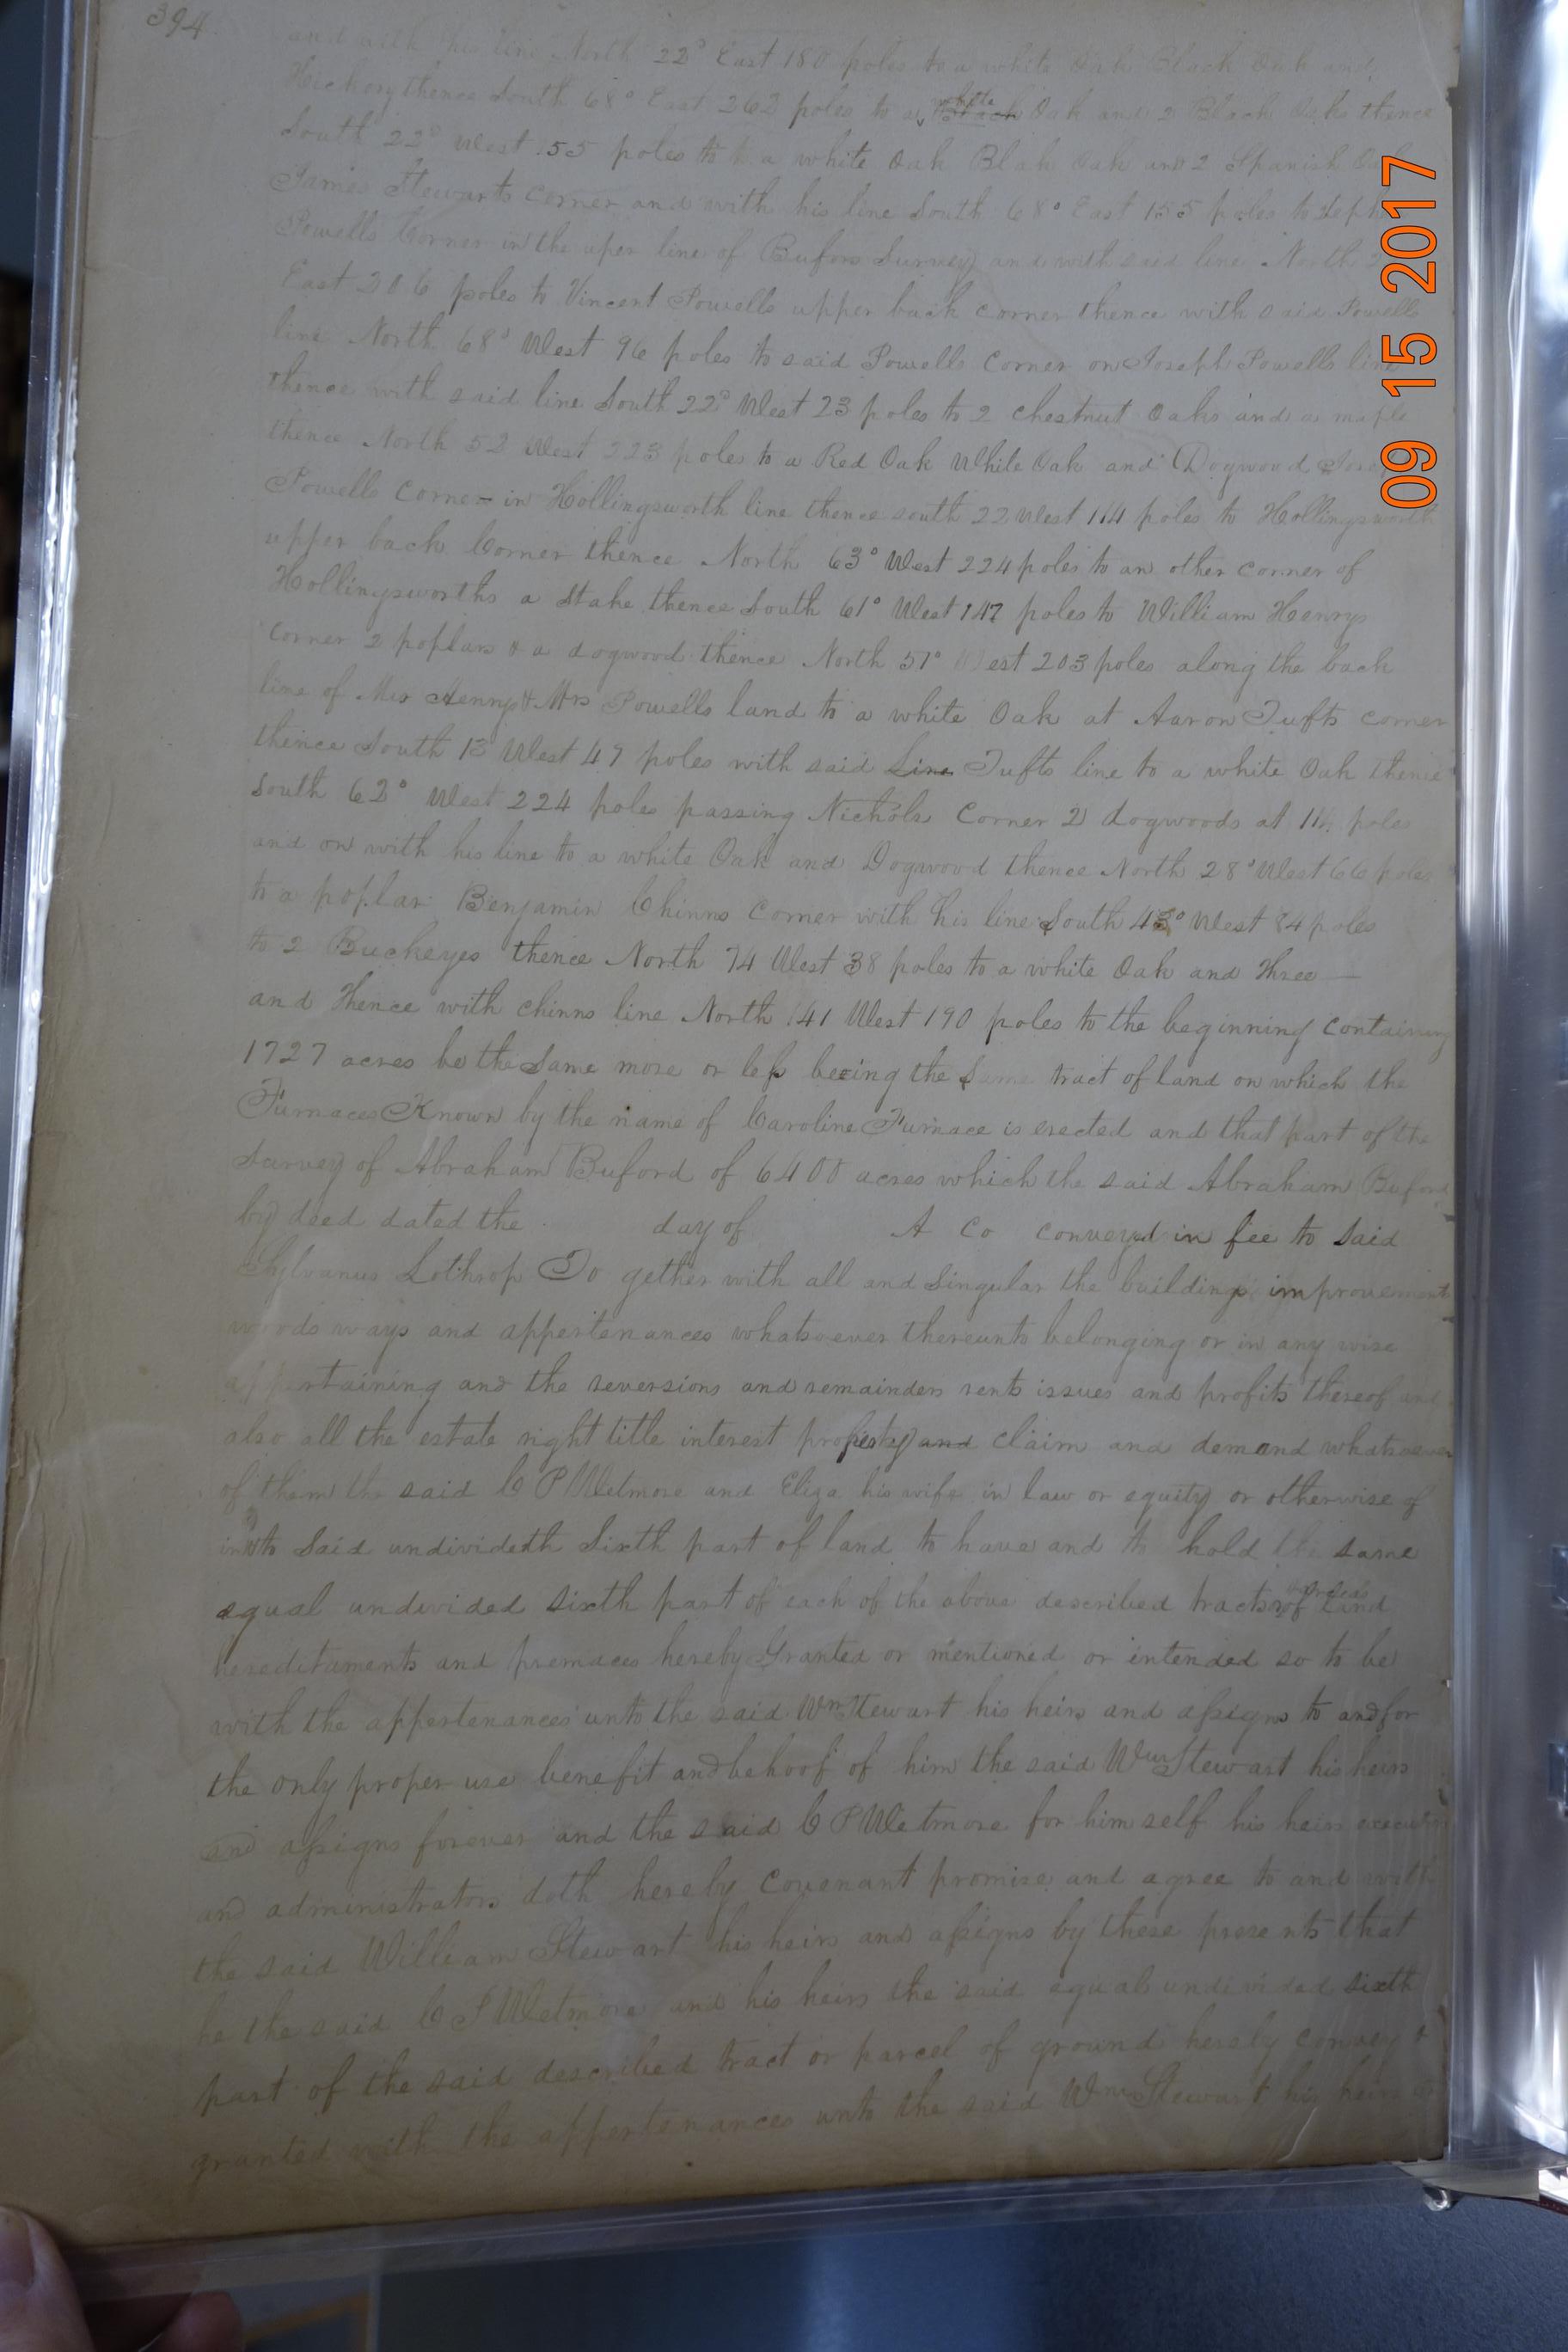 394
and with his line North 22° East 180 poles to a white Oak Black Oak and
Hickory thence South 68° East 262 poles to a white Black Oak and 2 Black Oaks thence
South 22° West 55 poles to to a white Oak Blak Oak and 2 Spanish
James Stewarts corner and with his line South 68° East 155 poles to
Powells Corner in the uper line of Bufors Survey and with said line North
East 206 poles to Vincent Powells upper back corner thence with said Powells
line North 68° West 96 poles to said Powells Corner on Joseph Powells line
thence with said line South 22° West 23 poles to 2 chestnut Oaks and a maple
thence North 52 West 223 poles to a Red Oak White Oak and Dogwood
Powells Corner in Hollingsworth line thence south 22 West 114 poles to Hollingsworth
upper back Corner thence North 63° West 224 poles to an other corner of
Hollingsworths a Stake thence South 61° West 147 poles to William Henrys
Corner 2 poplars & a dogwood thence North 51° West 203 poles along the back
line of Henrys & Mrs Powells land to a white Oak at Aaron Tufts corner
thence South 13 West 47 poles with said Line Tufts line to a white Oak thence
South 62° West 224 poles passing Nichols Corner 2 dogwoods at poles
and on with his line to a white Oak and Dogwood thence North 28° West 66 poles
to a poplar Benjamin Chinns Corner with his line South West 84 poles
to 2 Buckeyes thence North 74 West 38 poles to a white Oak and three —
and thence with chinns line North 41 West 190 poles to the beginning containing
1727 acres be the Same more or less beeing the Same tract of land on which the
Furnaces Known by the name of Caroline Furnace is erected and that part of the
Survey of Abraham Buford of 6400 acres which the said Abraham Buford
by deed dated the day of A Co conveyd in fee to said
Sylvanus Lothrop To gether with all and Singular the buildings improvements
woods ways and appertenances whatsoever thereunto belonging or in any wise
appertaining and the reversions and remainders rents issues and profits thereof and
also all the estate right title interest property and claim and demand whatsoever
of them the said C P Wetmore and Eliza his wife in law or equity or otherwise of
Said undivideth Sixth part of land to have and to hold the same
equal undivided sixth part of each of the above described tracts of Land
hereditaments and premaces hereby Granted or mentioned or intended so to be
with the appertenances unto the said Wm Stewart his heirs and assigns to and for
the only proper use benefit and behoof of him the said Wm Stewart his heirs
and assigns forever and the said C P Wetmore for him self his heirs executors
and administrators doth hereby Covenant promise and agree to and with
the said William Stewart his heirs and assigns by these presents that
he the said C P Wetmore and his heirs the said equal undivided sixth
part of the said described tract or parcel of ground hereby convey
granted with the appertenances unto the said Wm Stewart his heirs
09 15 2017